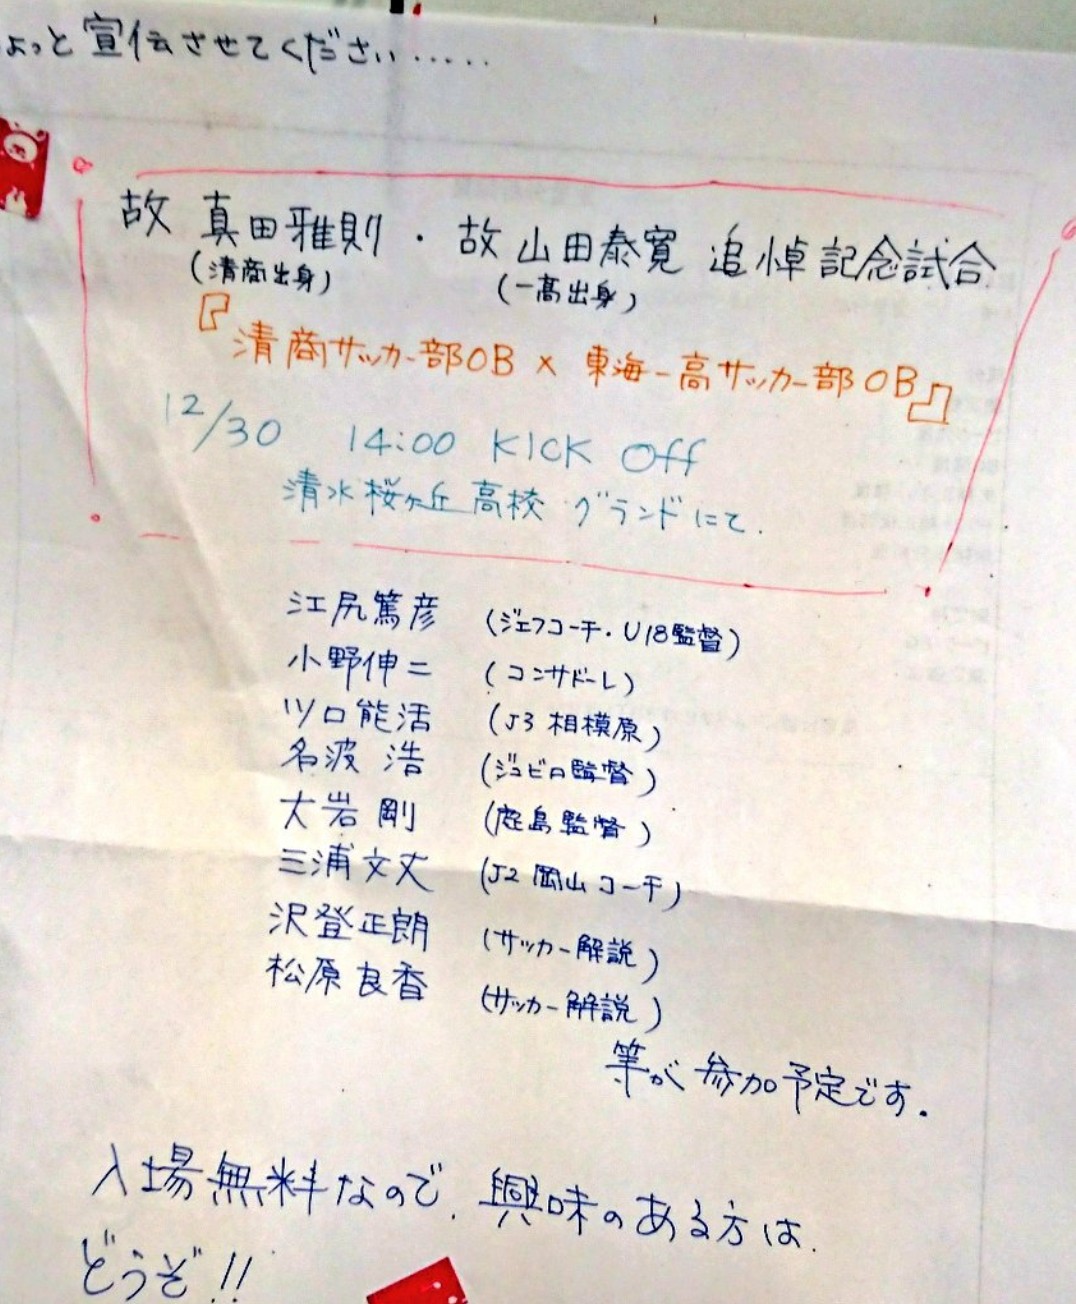 ょっと宣伝させてください.....
故 真田雅則・故 山田泰寛 追悼記念試合
(清商出身) (一高出身)
『清商サッカー部OB × 東海一高サッカー部OB』
12/30 14:00 KICK Off
清水桜ヶ丘高校 グランドにて.
江尻篤彦 (ジェフコーチ・U18監督)
小野伸二 (コンサドーレ)
川口能活 (J3 相模原)
名波 浩 (ジュビロ監督)
大岩 剛 (鹿島監督)
三浦文丈 (J2 岡山コーチ)
沢登正朗 (サッカー解説)
松原良香 (サッカー解説)
等が参加予定です.
入場無料なので、興味のある方は
どうぞ!!